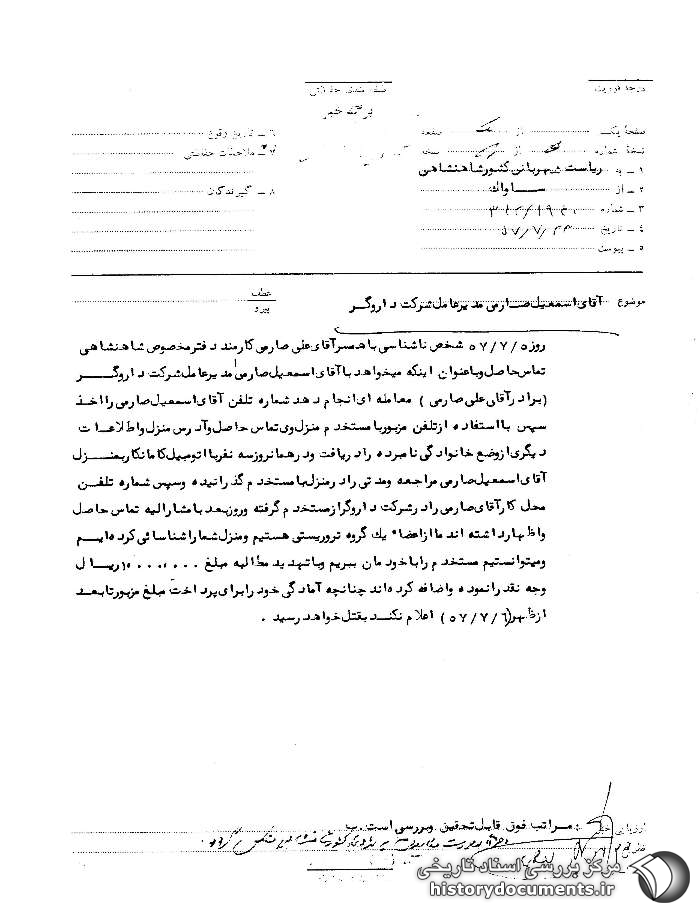 درجه فوریت
طبقه بندی حفاظتی
برگ خبر
صفحه یک از یک صفحه
نسخه شماره از نسخه
۱ - به ریاست شهربانی کشور شاهنشاهی
۲ - از ساواک
۳ - شماره
۴ - تاریخ ۵۷/۷/
۵ - پیوست
۶ - تاریخ وقوع
۷ - ملاحظات حفاظتی
۸ - گیرندگان
موضوع آقای اسمعیل صارمی مدیرعامل شرکت داروگر
عطف
پیرو
روز ۵۷/۷/۵ شخص ناشناسی با همسر آقای علی صارمی کارمند دفتر مخصوص شاهنشاهی
تماس حاصل و با عنوان اینکه میخواهد با آقای اسمعیل صارمی مدیرعامل شرکت داروگر
(برادر آقای علی صارمی) معامله ای انجام دهد شماره تلفن آقای اسمعیل صارمی را اخذ
سپس با استفاده از تلفن مزبور با مستخدم منزل وی تماس حاصل و آدرس منزل و اطلاعات
دیگری از وضع خانوادگی نامبرده را دریافت و در همانروز سه نفر با اتومبیل کامانکار بمنزل
آقای اسمعیل صارمی مراجعه و مدتی را در منزل با مستخدم گذرانیده و سپس شماره تلفن
محل کار آقای صارمی را در شرکت داروگر از مستخدم گرفته و روز بعد با مشارالیه تماس حاصل
و اظهار داشته اند ما از اعضاء یک گروه تروریستی هستیم و منزل شما را شناسائی کرده ایم
و میتوانستیم مستخدم را با خودمان ببریم و با تهدید مطالبه مبلغ ۱۰،۰۰۰،۰۰۰ ریال
وجه نقد را نموده و اضافه کرده اند چنانچه آمادگی خود را برای پرداخت مبلغ مزبور تا بعد
از ظهر (۵۷/۷/۶) اعلام نکند بقتل خواهد رسید .
ارزیابی خبر : مراتب فوق قابل تحقیق و بررسی است . ب
مرکز بررسی اسناد تاریخی
historydocuments.ir